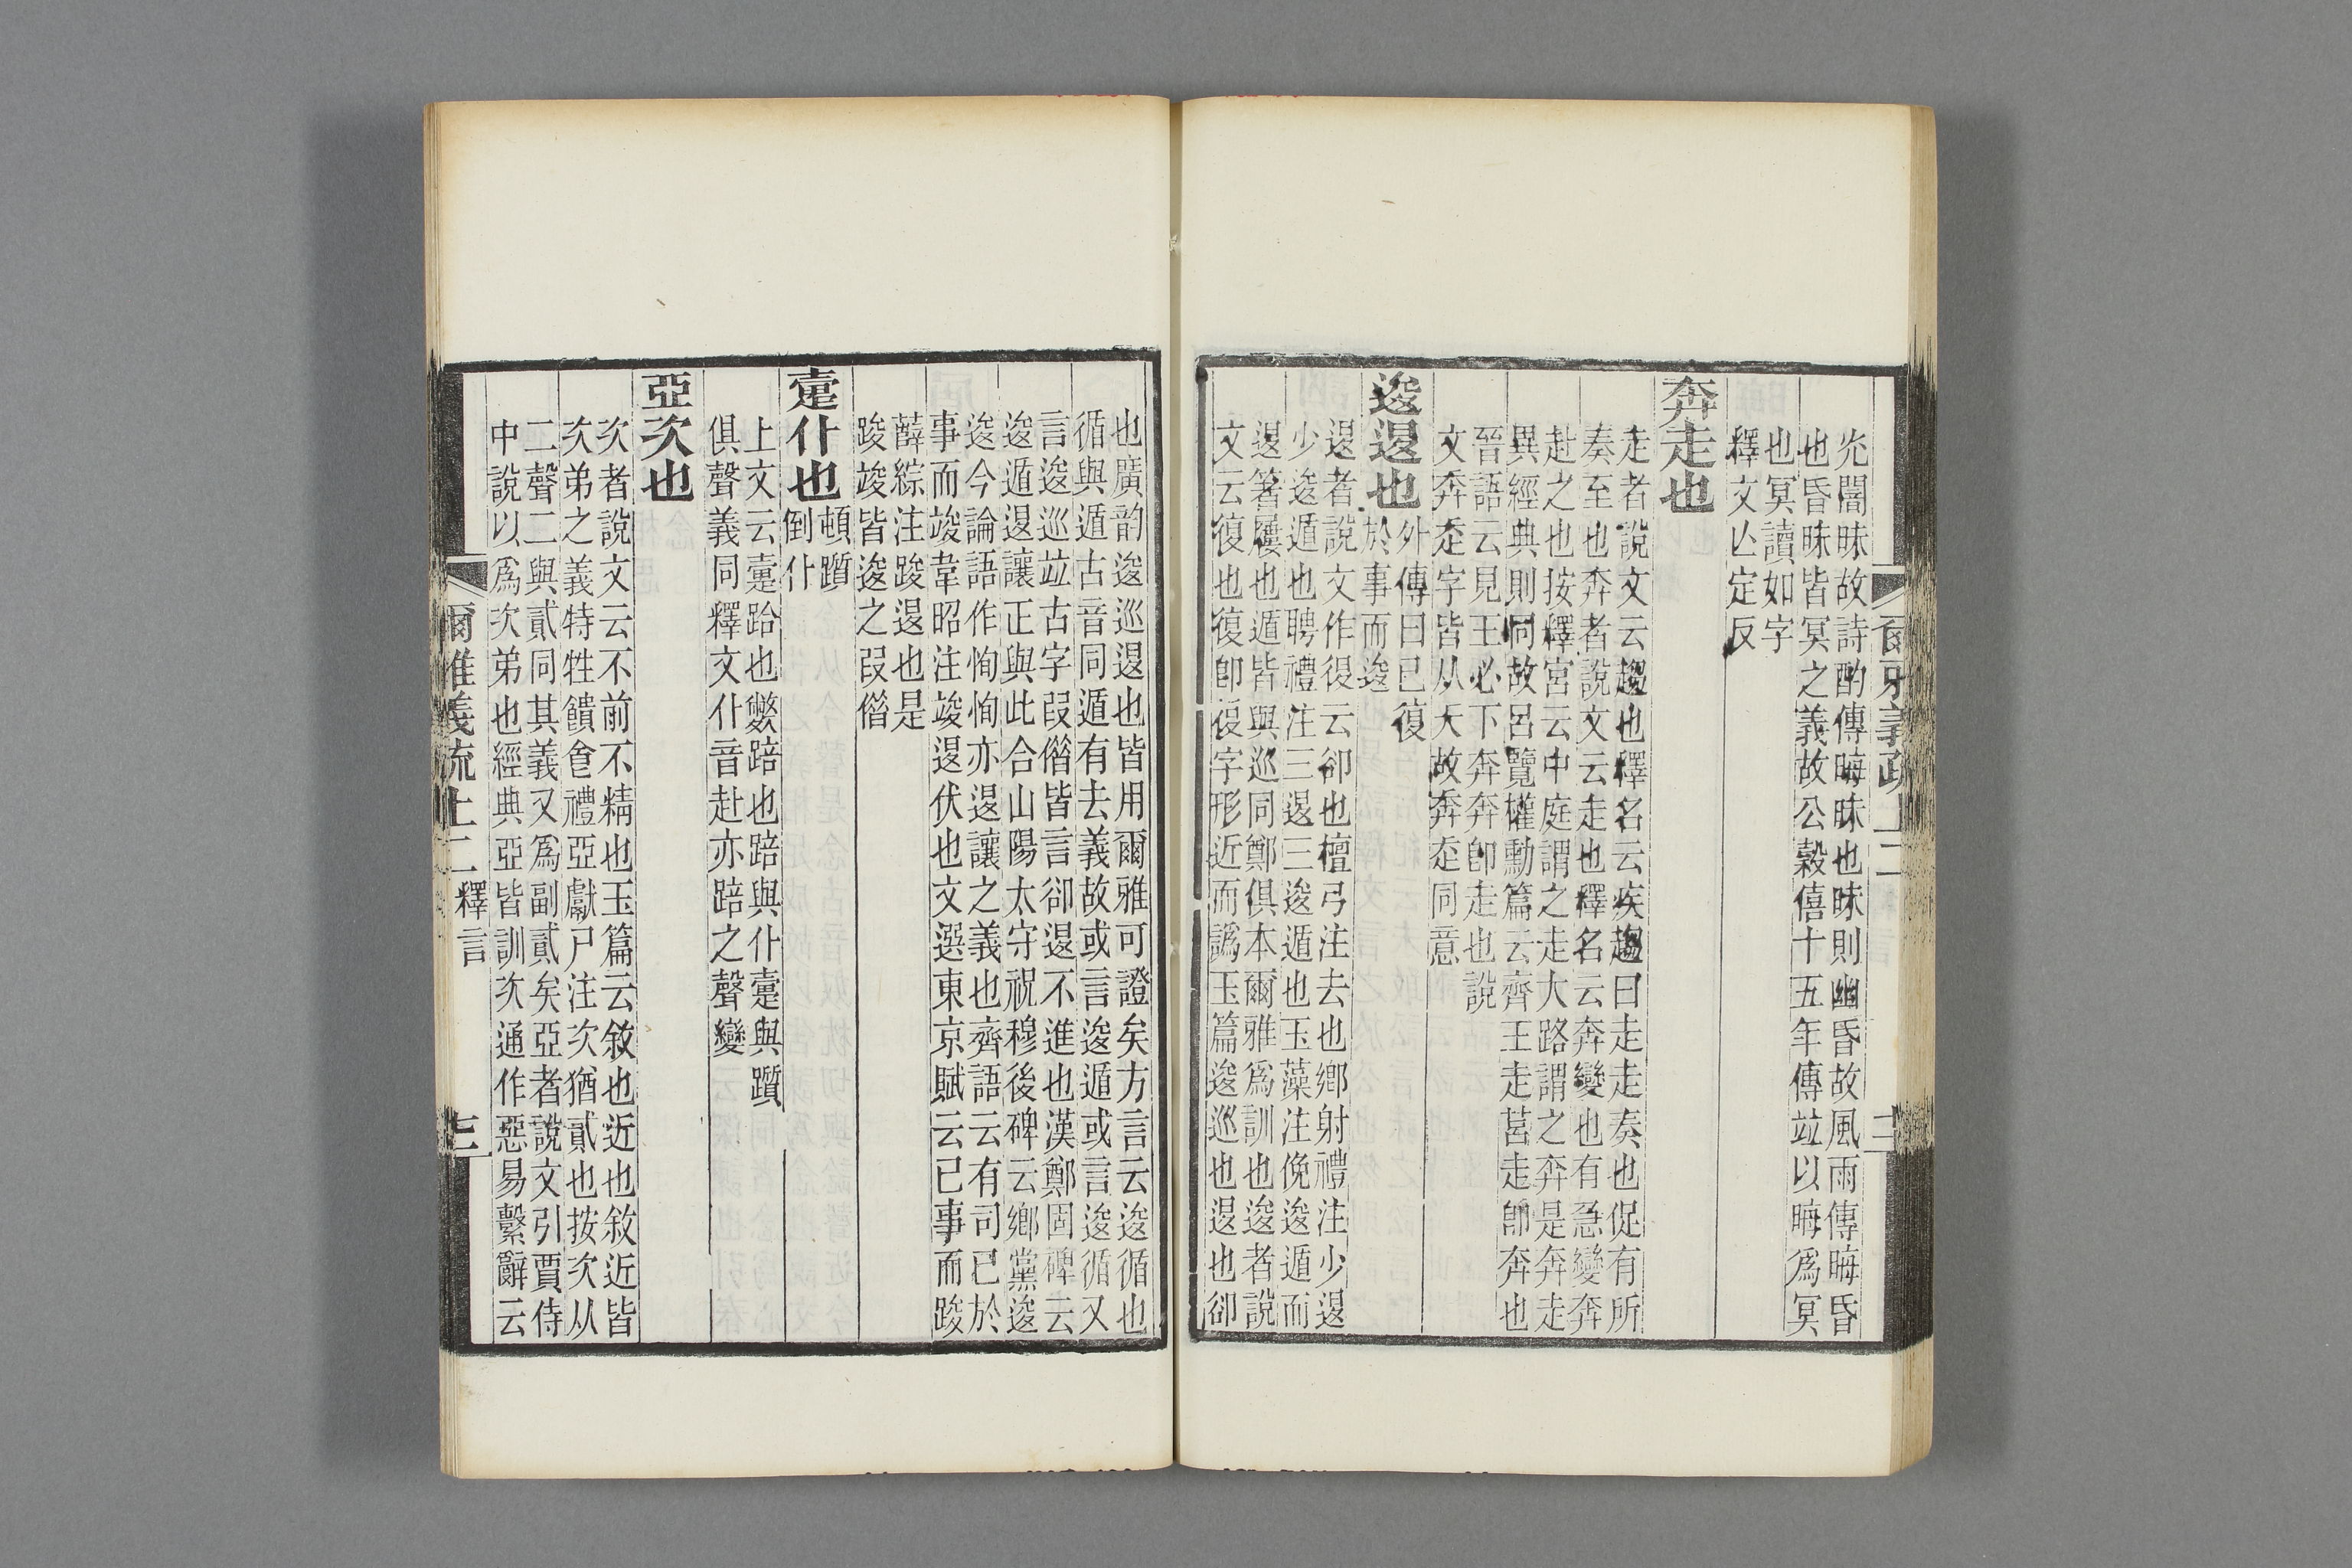 光闇昧故詩酌傳晦昧也昧則幽昏故風雨傳晦昏
也昏昧皆冥之義故公穀僖十五年傳竝以晦爲冥
也冥讀如字
釋文亾定反
奔走也
走者說文云趨也釋名云疾趨曰走走奏也促有所
奏至也奔者說文云走也釋名云奔變也有急變奔
赴之也按釋宮云中庭謂之走大路謂之奔是奔走
異經典則同故呂覽權勳篇云齊王走莒走卽奔也
晉語云見王必下奔奔卽走也說
文奔赱字皆从夭故奔赱同意
逡退也
外傳曰已復
於事而逡
退者說文作復云卻也檀弓注去也鄉射禮注少退
少逡遁也聘禮注三退三逡遁也玉藻注俛逡遁而
退著屨也遁皆與巡同鄭俱本爾雅爲訓也逡者說
文云復也復卽復字形近而譌玉篇逡巡也退也卻
也廣韵逡巡退也皆用爾雅可證矣方言云逡循也
循與遁古音同遁有去義故或言逡遁或言逡循又
言逡巡竝古字叚借皆言卻退不進也漢鄭固碑云
逡遁退讓正與此合山陽太守祝穆後碑云鄉黨逡
逡今論語作恂恂亦退讓之義也齊語云有司已於
事而竣韋昭注竣退伏也文選東京賦云已事而踆
薛綜注踆退也是
踆竣皆逡之叚借
疐仆也
頓躓
倒仆
上文云疐跲也獘踣也踣與仆疐與躓
俱聲義同釋文仆音赴亦踣之聲變
亞次也
次者說文云不前不精也玉篇云敘也近也敘近皆
次弟之義特牲饋食禮亞獻尸注次猶貳也按次从
二聲二與貳同其義又爲副貳矣亞者說文引賈侍
中說以爲次弟也經典亞皆訓次通作惡易繫辭云
爾雅義疏上二 釋言 三